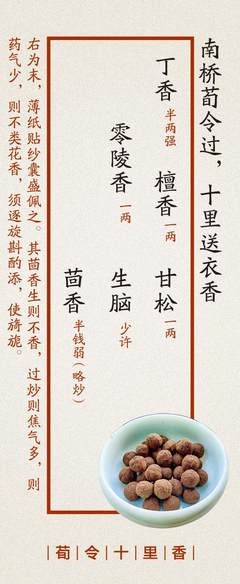 南桥荀令过，十里送衣香
丁香半两强 檀香一两 甘松一两
零陵香一两 生脑少许
茴香半钱弱（略炒）
右为末，薄纸贴纱囊盛佩之。其茴香生则不香，过炒则焦气多，则
药气少，则不类花香，须逐旋斟酌添，使旖旎。
荀令十里香